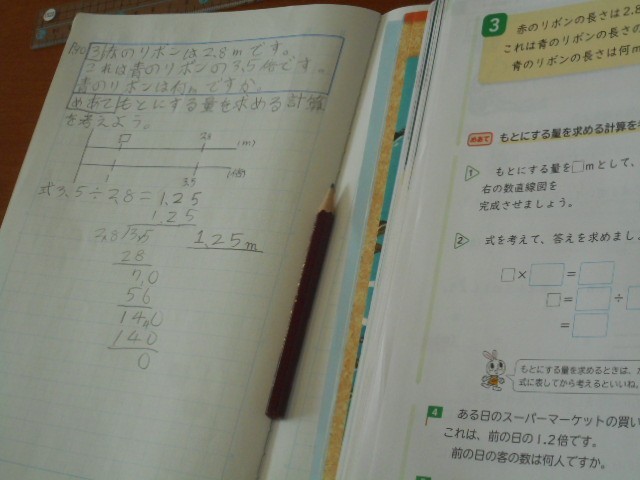 3 赤のリボンの長さは2.8mです。
これは青のリボンの3.5倍です。
青のリボンは何mですか。
めあて もとにする量を求める計算
を考えよう。
□
(m)
1
3.5
式 3.5÷2.8=1.25
1.25
2.8/3.5
1.25m
28
7.0
56
14.0
140
0
3
赤のリボンの長さは2.8
これは青のリボンの長さの
青のリボンの長さは何m
めあて もとにする量を求める計算を
1 もとにする量を□mとして、
右の数直線図を
完成させましょう。
2 式を考えて、答えを求めまし
□×□=□
□=□÷
=□
もとにする量を求めるときは、
式に表してから考えるといいね。
4 ある日のスーパーマーケットの買い
これは、前の日の1.2倍です。
前の日の客の数は何人ですか。